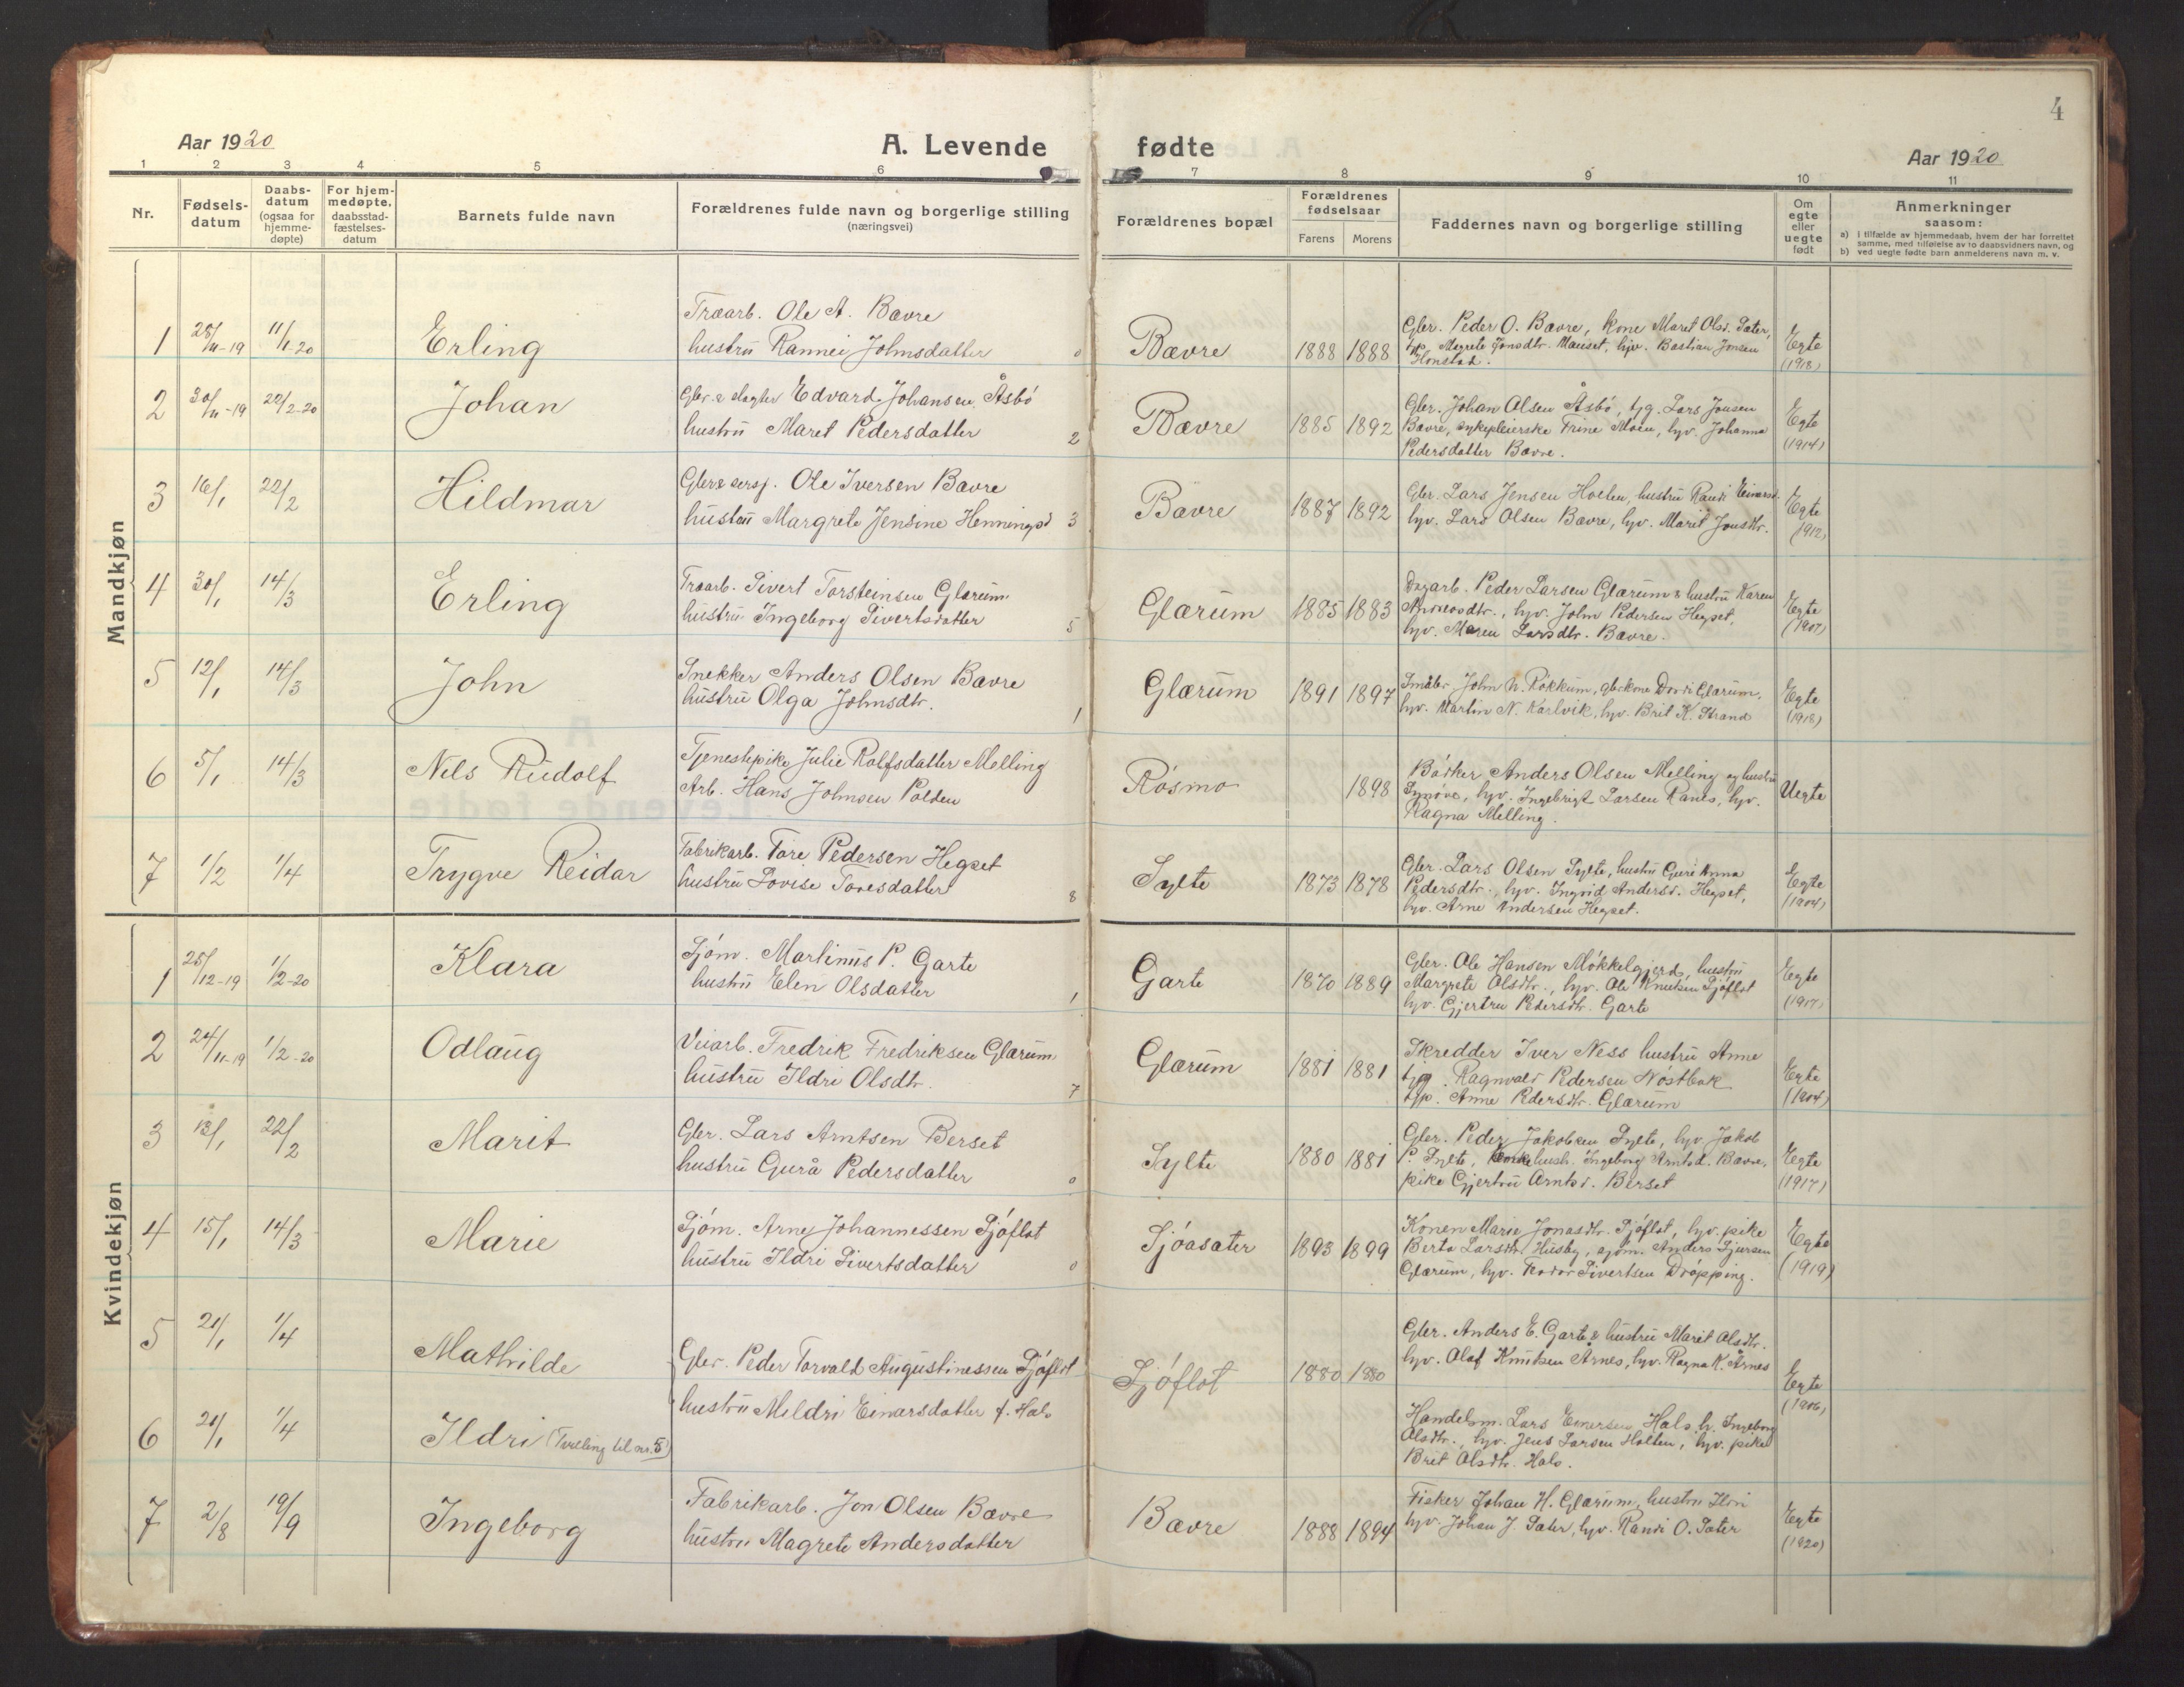 4
Aar 1920
A. Levende fødte
Aar 1920
1 2 3 4 5 6 7 8 9 10 11
Nr.
Fødsels-
datum
Daabs-
datum
(ogsaa for
hjemme-
døpte)
For hjem-
medøpte,
daabsstad-
fæstelses-
datum
Barnets fulde navn
Forældrenes fulde navn og borgerlige stilling
(næringsvei)
Forældrenes bopæl
Forældrenes
fødselsaar
Farens Morens
Faddernes navn og borgerlige stilling
Om
egte
eller
uegte
født
Anmerkninger
saasom:
a) i tilfælde av hjemmedaab, hvem der har forrettet
samme, med tilføielse av to daabsvidners navn, og
b) ved uegte fødte barn anmelderens navn m. v.
Mandkjøn
1 28/11-19 11/1-20 Erling
Træarb. Ole A. Bævre
hustru Rannei Johnsdatter 0
Bævre 1888 1888
Gbr. Peder O. Bævre, kone Maret Olsd. Sæter,
Megrete Jonsdtr. Mauset, hjv. Bastian Jonsen
Honstad.
Egte
(1918)
2 30/11-19 22/2-20 Johan
Gbr. & slagter Edvard Johansen Åsbö
hustru Maret Pedersdatter 2
Bævre 1885 1892
Gbr. Johan Olsen Åsbö, tjg. Lars Jonsen
Bævre, sykepleierske Trine Moen, hjv. Johanna
Pedersdatter Bævre.
Egte
(1914)
3 16/1 22/2 Hildmar
Gbr & sersj. Ole Iversen Bævre
hustru Margrete Jensine Henningsd 3
Bævre 1887 1892
Gbr. Lars Jensen Holten, hustru Randi Einarsd.
hjv. Lars Olsen Bævre, hjv. Marit Jonsdtr.
Egte
(1912)
4 30/1 14/3 Erling
Træarb. Sivert Torsteinsen Glærum
hustru Ingeborg Sivertsdatter 5
Glærum 1885 1883
Dagarb. Peder Larsen Glærum & hustru Karen
Andreasdtr., hjv. John Pedersen Hegset,
hjv. Maren Larsdtr. Bævre.
Egte
(1907)
5 12/1 14/3 John
Snekker Anders Olsen Bævre
hustru Olga Johnsdtr. 1
Glærum 1891 1897
Småbr. John N. Rökkum, gbrkone Dordi Glærum,
hjv. Martin N. Karlvik, hjv. Brit K. Strand
Egte
(1918)
6 5/1 14/3 Nils Rudolf
Tjenestepike Julie Rolfsdatter Melling
Arb. Hans Johnsen Polden
Rösmo 1898
Bödker Anders Olsen Melling og hustru
Synöve, hjv. Ingebrigt Larsen Ranes, hjv.
Ragna Melling.
Uegte
7 1/2 1/4 Trygve Reidar
Fabrikarb. Tore Pedersen Hegset
hustru Lovise Toresdatter 8
Sylte 1873 1878
Gbr. Lars Olsen Sylte, hustru Guri Anna
Pedersdtr., hjv. Ingrid Andersd. Hegset,
hjv. Arne Andersen Hegset.
Egte
(1904)
Kvindekjøn
1 25/12-19 1/2-20 Klara
Sjöm. Martinus P. Garte
hustru Elen Olsdatter 1
Garte 1870 1889
Gbr. Ole Hansen Mökkelgjerd, hustru
Margrete Olsdtr., hjv. Ole Knutsen Sjöflot
hjv. Gjertru Pedersdtr. Garte
Egte
(1917)
2 24/11-19 1/2-20 Odlaug
Veiarb. Fredrik Fredriksen Glærum
hustru Ildri Olsdtr. 7
Glærum 1881 1881
Skredder Iver Ness hustru Anne
tjg. Ragnvald Pedersen Nöstbak
tjp. Anne Pedersdtr. Glærum
Egte
(1904)
3 13/1 22/2 Marit
Gbr. Lars Arntsen Berset
hustru Gurå Pedersdatter 0
Sylte 1880 1881
Gbr. Peder Jakobsen Sylte, hjv. Jakob
P. Sylte, hush. Ingeborg Arntsd. Bævre,
pike Gjertru Arntsd. Berset
Egte
(1917)
4 15/1 14/3 Marie
Sjöm. Arne Johannessen Sjöflot
hustru Ildri Sivertsdatter 0
Sjöasæter 1893 1899
Konen Marie Jonasdtr. Sjöflot, hjv. pike
Berta Larsdtr. Husby, sjöm. Anders Sjursen
Glærum, hjv. Sivertsen Dröpping.
Egte
(1919)
5 21/1 1/4 Mathilde
Gbr. Peder Torvald Augustinessen Sjöflot
hustru Meldri Einarsdatter f. Hals
Sjöflot 1880 1880
Gbr. Anders E. Garte & hustru Marit Olsdtr.
hjv. Olaf Knutsen Årnes, hjv. Ragna K. Årnes
Egte
(1906)
6 21/1 1/4 Ildri (Tvilling til nr. 5)
Handelsm. Lars Einersen Hals, h. Ingeborg
Olsdtr., hjv. Jens Larsen Holten, hjv. pike
Brit Olsdtr. Hals.
7 2/8 19/9 Ingeborg
Fabrikarb. Jon Olsen Bævre
hustru Magrete Andersdatter
Bævre 1888 1894
Fisker Johan H. Glærum, hustru Ildri
hjv. Johan J. Sæter, hjv. Randi O. Sæter
Egte
(1920)